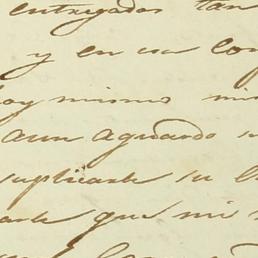 entregados tan
y en esa con
hoy mismo mi
aun aguardo su
suplicarle su
arle que mi